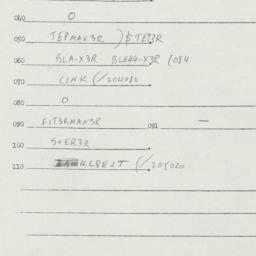 040 0
050 TEPMAX3R ) $ TEP3R
060 BLA-X3R BLE44-X3R (084
070 LINK (/204080
080 0
090 FIT3RMAX3R 091 —
100 S+ER3R
110 (/205020